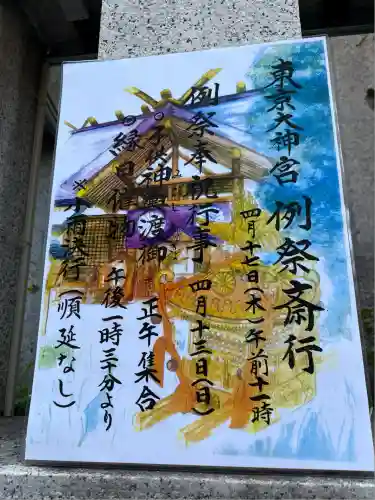 東京大神宮 例祭斎行
四月十七日(木)午前十一時
例祭奉祝行事 四月十三日(日)
◎子供神輿渡御 正午集合
◎縁日催物 午後一時三十分より
※小雨決行(順延なし)